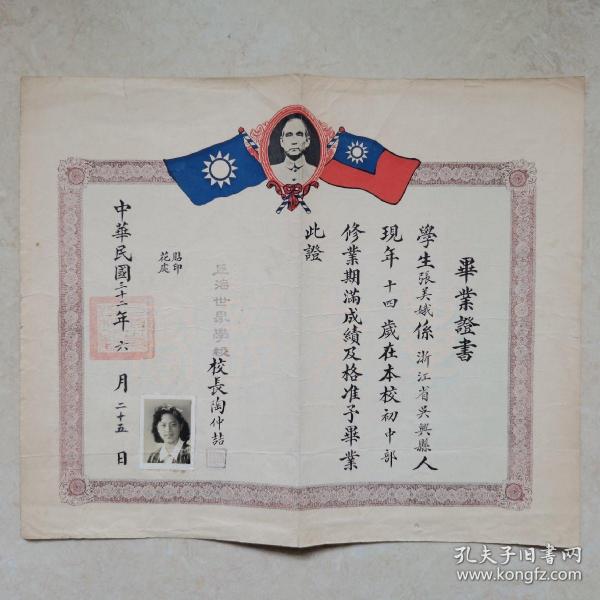 畢業證書
學生張美娥係浙江省吳興縣人
現年十四歲在本校初中部
修業期滿成績及格准予畢業
此證
上海世界學校校長陶仲喆
貼印
花處
中華民國三十二年六月二十五日
孔夫子旧书网
www.kongfz.com